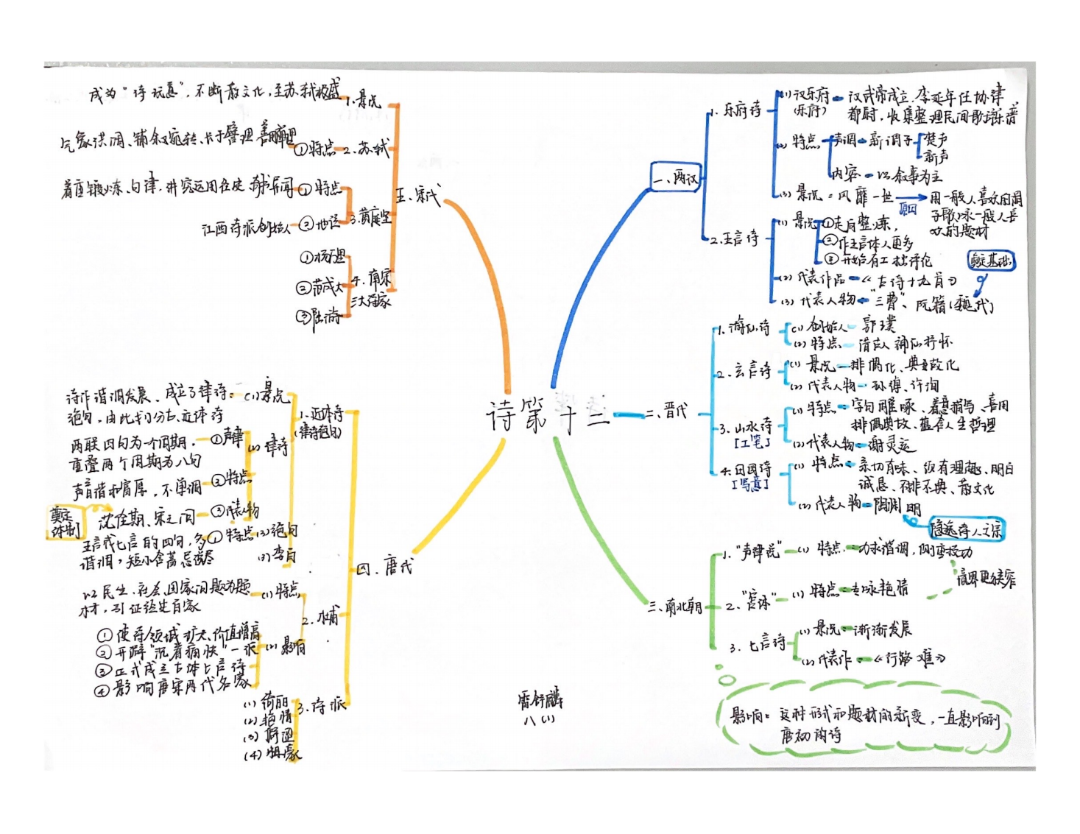 诗第十三
一、两汉
1. 乐府诗
(1) 汉乐府(乐府)
汉武帝成立,李延年任协律
都尉,收集整理民间歌谣
(2) 特点
声调 新调子
楚声
新声
内容 以叙事为主
(3) 景况 = 风靡一世
原因
用一般人喜欢的调
子歌咏一般人喜
欢的题材
2. 五言诗
(1) 景况
①走向整炼,
②作五言体人更多
③开始有工拙评论
(2) 代表作品 《古诗十九首》
奠定基础
(3) 代表人物 "三曹"、阮籍(魏代)
二、晋代
1. 游仙诗
(1) 创始人 郭璞
(2) 特点 借古人神仙抒怀
2. 玄言诗
(1) 景况 排偶化、典故化
(2) 代表人物 孙绰、许询
3. 山水诗
[工笔]
(1) 特点 字句雕琢、着意描写、善用
排偶典故、蕴含人生哲理
(2) 代表人物 谢灵运
4. 田园诗
[写意]
(1) 特点 亲切有味、饶有理趣、明白
诚恳、不排不典、散文化
(2) 代表人物 陶渊明
隐逸诗人之宗
三、南北朝
1. "声律说"
(1) 特点 力求谐调,侧重技巧
2. "宫体"
(1) 特点 专咏艳情
3. 七言诗
(1) 景况 渐渐发展
(2) 代表作 《行路难》
影响: 这种形式和题材的新变,一直影响到
唐初的诗
四、唐代
1. 近体诗
(律诗绝句)
(1) 景点
诗作谐调发展、成立了律诗
绝句,由此划分古、近体诗
(2) 律诗
①声律
两联四句为一个周期,
重叠两个周期为八句
②特点
声音谐和富厚,不单调
③代表人物
沈佺期、宋之问
奠定
体制
(3) 绝句
①特点
五言或七言的四句,多
谐调,短小含蓄
(3) 李白
2. 杜甫
(1) 特点
以民生、社会、国家问题为题
材,引证经史百家
(2) 影响
①使诗领域扩大、价值增高
②开辟"沉着痛快"一派
③正式成立古体七言诗
④影响唐宋两代名家
3. 诗派
(1) 绮丽
(2) 艳情
五、宋代
1. 景况
成为"诗玩意",不断散文化,至苏轼极盛
2. 苏轼
①特点
气象洪阔、铺叙宛转、长于譬理、善用理
3. 黄庭坚
①特点
着重锻炼、句律,讲究运用在使
②地位
江西诗派创始人
4. 南宋
三大诗家
①杨万里
②范成大
③陆游
八(1)